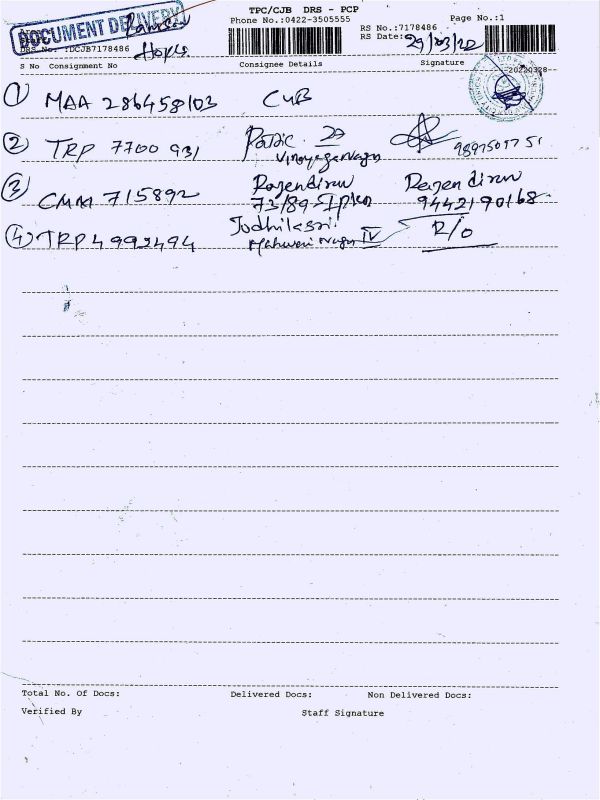 TPC/CJB DRS - PCP
Phone No.:0422-3505555 Page No.:1
DOCUMENT DELIVERY
RS No.:7178486
RS Date: 29/03/22
DRS No. :DCJB7178486
Hopes
S No Consignment No Consignee Details Signature
20220328
1 MAA 286458103 CUB
2 TRP 7700 931
Vinayaga Nagar
3 CMM 715892 Rajendiran Rajendiran
73/89 9442190168
4 TRP 4992494 R/O
Nagar IV
Total No. Of Docs: Delivered Docs: Non Delivered Docs:
Verified By Staff Signature